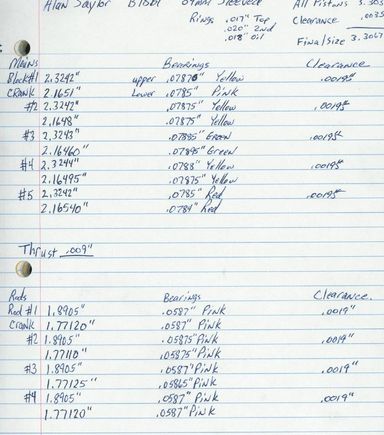 Alan Saylor B16B1 84mm Sleeved All Pistons 3.303
Rings .017" Top Clearance .0035
.020" 2nd
.018" oil Final Size 3.3067
Mains Bearings Clearance
Block #1 2.3242" upper .07870" Yellow .0019"
CRANK 2.1651" Lower .0785" Pink
#2 2.3242" .07875" Yellow .0019"
2.1648" .07875" Yellow
#3 2.3243" .07895" Green .0019"
2.16460" .07895" Green
#4 2.3244" .0788" Yellow .0019"
2.16495" .07875" Yellow
#5 2.3242" .0785" Red .0019"
2.16540" .0784" Red
Thrust .009"
Rods Bearings Clearance.
Rod #1 1.8905" .0587" Pink .0019"
Crank 1.77120" .0587" Pink
#2 1.8905" .05875" Pink .0019"
1.77110" .05875" Pink
#3 1.8905" .0587" Pink .0019"
1.77125" .05865" Pink
#4 1.8905" .0587" Pink .0019"
1.77120" .0587" Pink